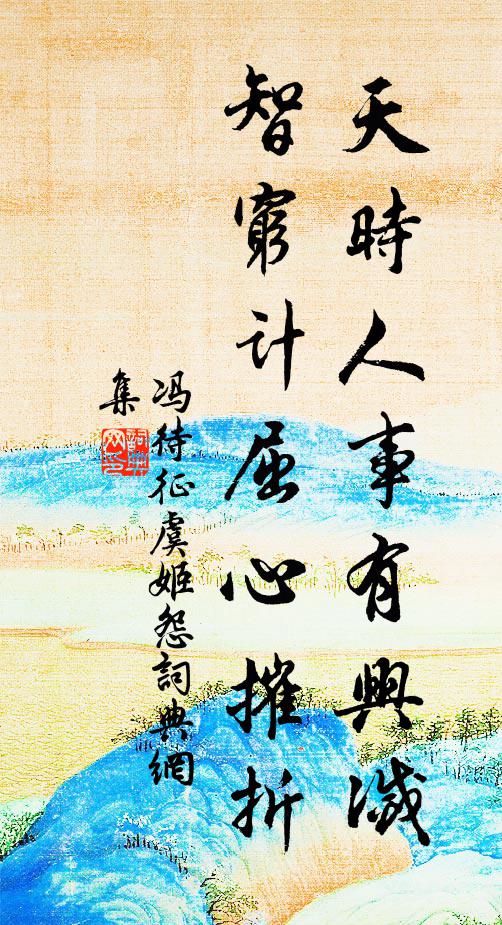 天時人事有興滅
智窮计屈心摧折
冯待征虞姬怨詞典網
集